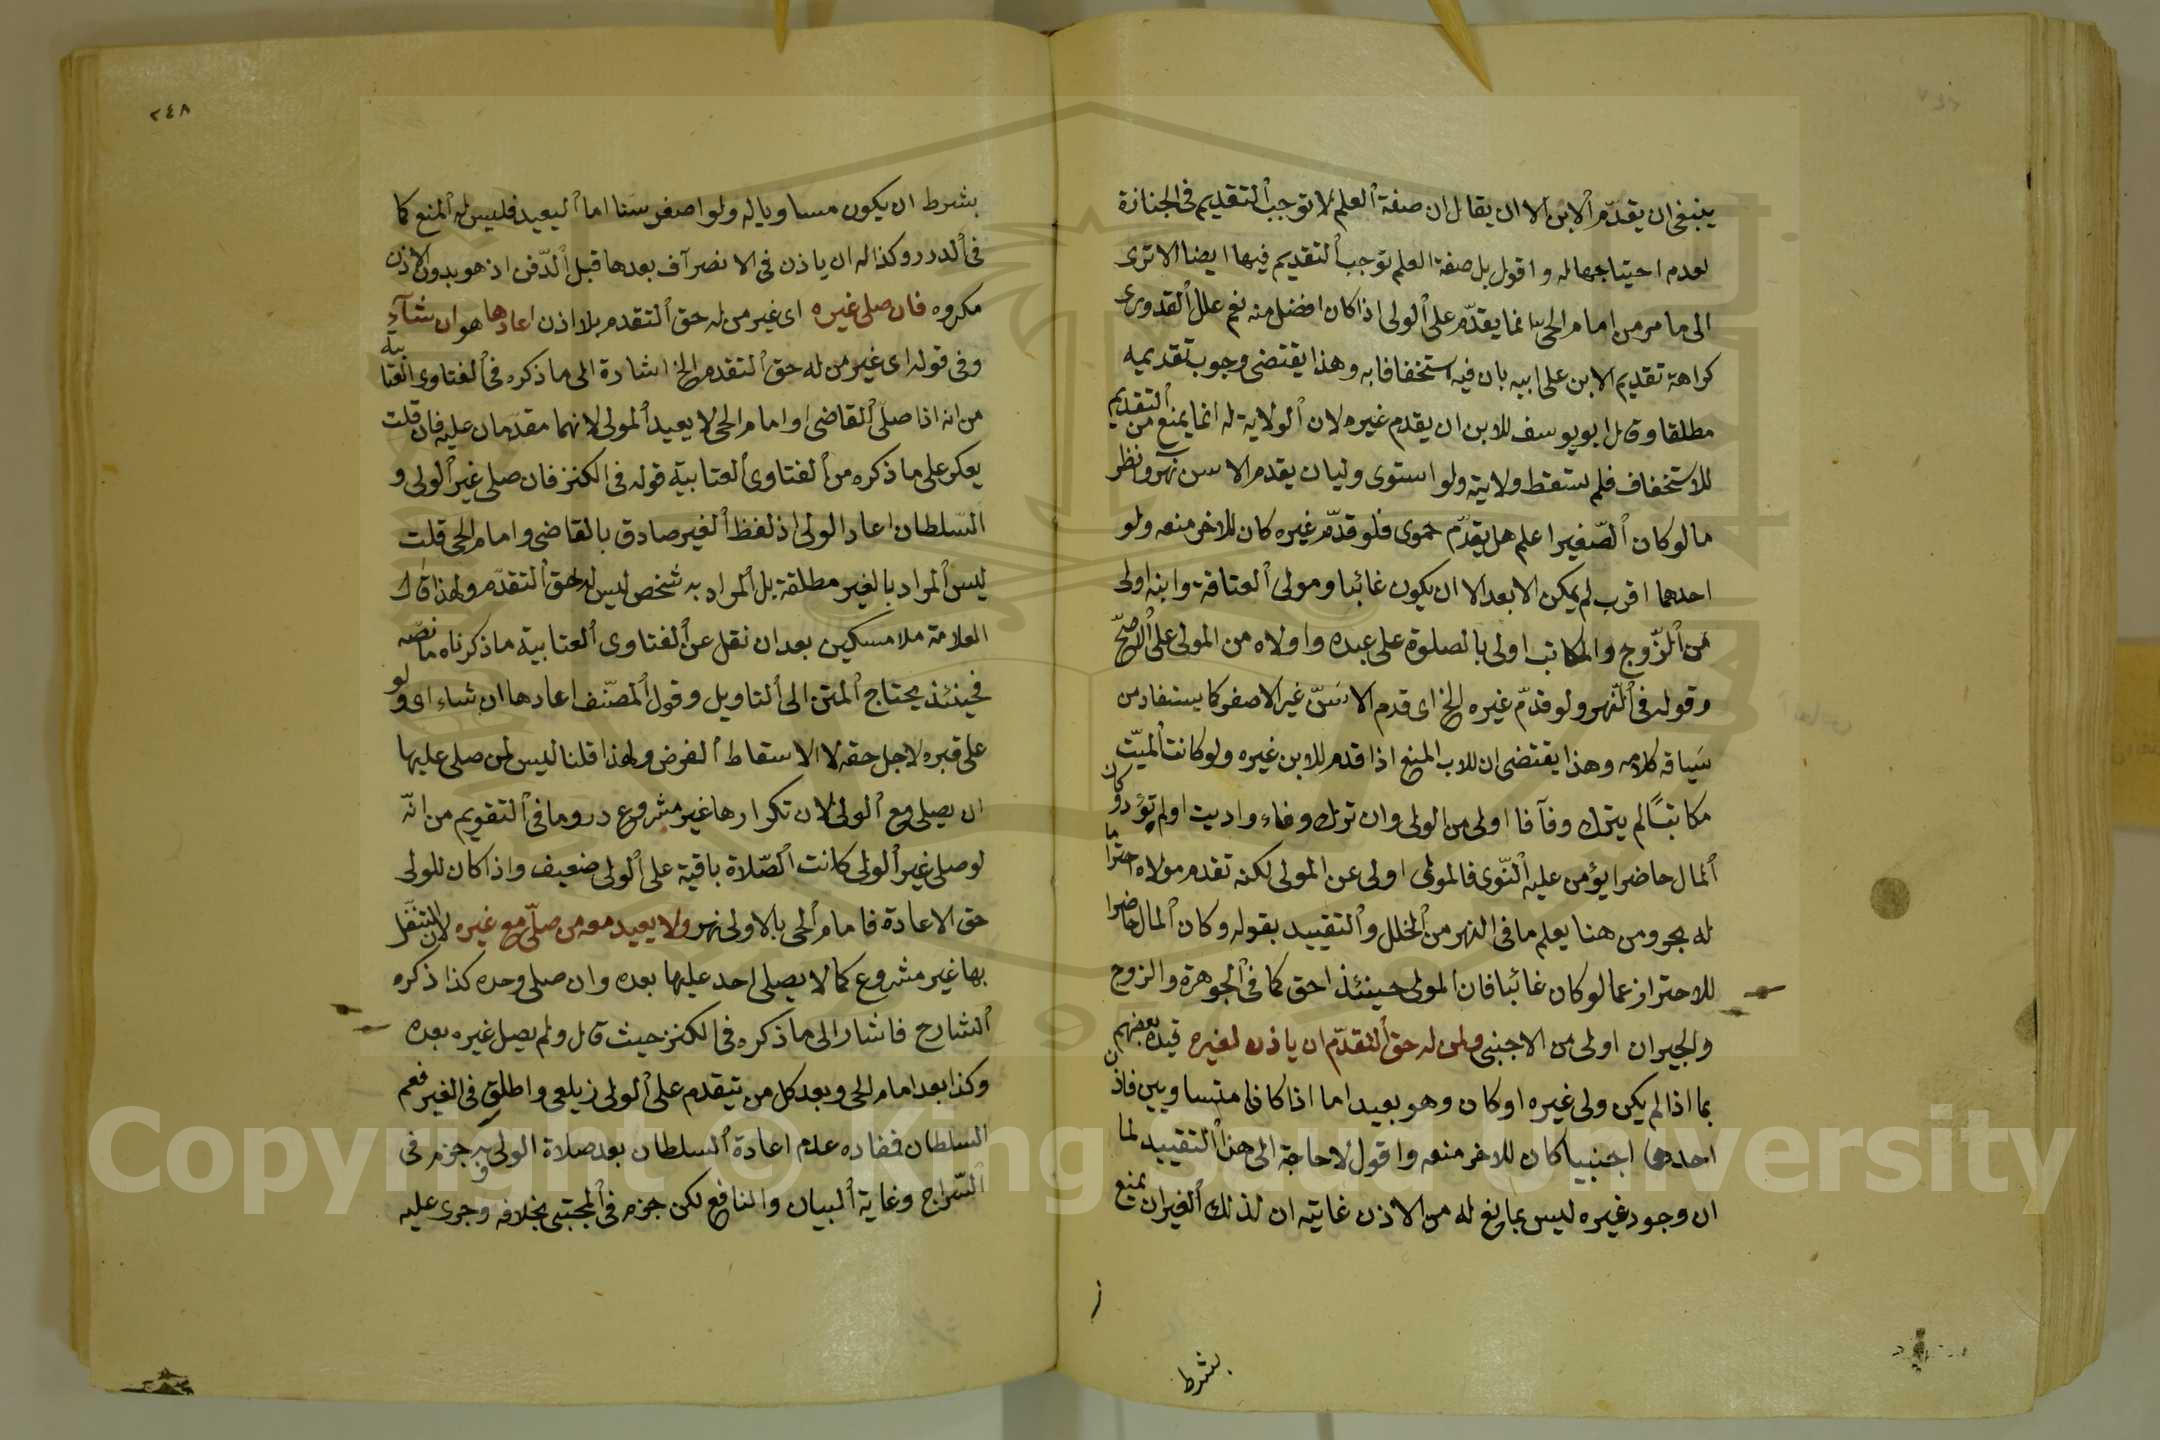 ينبغي ان يقدّم الابن الا ان يقال ان صفة العلم لا توجب التقديم في الجنازة
لعدم احتياجها له واقول بل صفة العلم توجب التقديم فيها ايضا الا ترى
الى ما مر من امام الحي انما يقدّم على الولي اذا كان افضل منه نعم علل القدوري
كراهة تقديم الابن على ابيه بان فيه استخفافا به وهذا يقتضي وجوب تقديمه
مطلقا وقال ابو يوسف للابن ان يقدم غيره لان الولاية له انما يمنع من التقديم
للاستخفاف فلم تسقط ولايته ولو استوى وليان يقدم الاسن نهر ونظر
ما لو كان الصّغير اعلم هل يقدّم حموى فلو قدّم غيره كان للاخر منعه ولو
احدهما اقرب لم يمكن الابعد الا ان يكون غائبا ومولى العتاقة وابنه اولى
من الزّوج والمكاتب اولى بالصلوة على عبده واولاه من المولى على الاصحّ
وقوله في النّهر ولو قدّم غيره الخ اى قدم الاسَنّ غير الاصغر كما يستفاد من
سَياقه كلامه وهذا يقتضي ان للاب المنع اذا قدم للابن غيره ولو كانت الميّت
مكاتبًا لم يترك وفآفا اولى من الولى وان ترك وفاء واديت او لم تؤد وكان
المال حاضرا يؤمن عليه التّوى فالمولى اولى عن المولى لكنه تقدم مولاه احتراما
له بحر ومن هنا يعلم ما في النهر من الخلل والتقييد بقوله وكان المال حاضرا
للاحتراز عما لو كان غائبا فان المولى حينئذ احق كما في الجوهرة والزوج
والجيران اولى من الاجنبى ولمن له حق التقدّم ان ياذن لغيره قيده بعضهم
بما اذا لم يكن ولى غيره او كان وهو بعيد اما اذا كانا متساويين فاذن
احدهما اجنبيا كان للاخر منعه واقول لا حاجة الى هذا التقييد لما
ان وجود غيره ليس بمانع له من الاذن غايته ان لذلك الغير ان يمنع
بشرط
٢٤٨
بشرط ان يكون مساويا له ولو اصغر سنا اما البعيد فليس له المنع كما
في الدرر وكذا له ان ياذن في الانصرآف بعدها قبل الدّفن اذ هو بدون الاذن
مكروه فان صلى غيره اى غير من له حق التقدم بلا اذن اعادها هو ان شآء
وفي قوله اى غير من له حق التقدم الخ اشارة الى ما ذكره في الفتاوى العتابية
من انه اذا صلّى القاضى او امام الحى لا يعيد المولى لانهما مقدّمان عليه فان قلت
يعكر على ما ذكره من الفتاوى العتابية قوله في الكنز فان صلى غير الولى و
السّلطان اعاد الولى اذ لفظ الغير صادق بالقاضى وامام الحى قلت
ليس المراد بالغير مطلقه بل المراد به شخص ليس له حق التقدّم ولهذا قال
العلامة ملا مسكين بعد ان نقل عن الفتاوى العتابية ما ذكرناه ما نصّه
فحينئذ يحتاج المتن الى التاويل وقول المصنّف اعادها ان شاء اى ولو
على قبره لاجل حقه لا لاسقاط الفرض ولهذا قلنا ليس لمن صلى عليها
ان يصلى مع الولى لان تكرارها غير مشروع درر وما في التقويم من انّه
لو صلى غير الولى كانت الصّلاة باقية على الولى ضعيف واذا كان للولى
حق الاعادة فامام الحى بالاولى نهر ولا يعيد معه من صلّى مع غيره لان التنفّل
بها غير مشروع كما لا يصلى احد عليها بعده وان صلى وحده كذا ذكره
الشارح فاشار الى ما ذكره في الكنز حيث قال ولم يصل غيره بعده
وكذا بعد امام الحى وبعد كل من يتقدم على الولى زيلعى واطلق في الغير فعم
السلطان فمفاده عدم اعادة السلطان بعد صلاة الولى وبه جزم في
السّراج وغاية البيان والنافع لكن جزم في المجتبى بخلافه وجرى عليه
Copyright © King Saud University